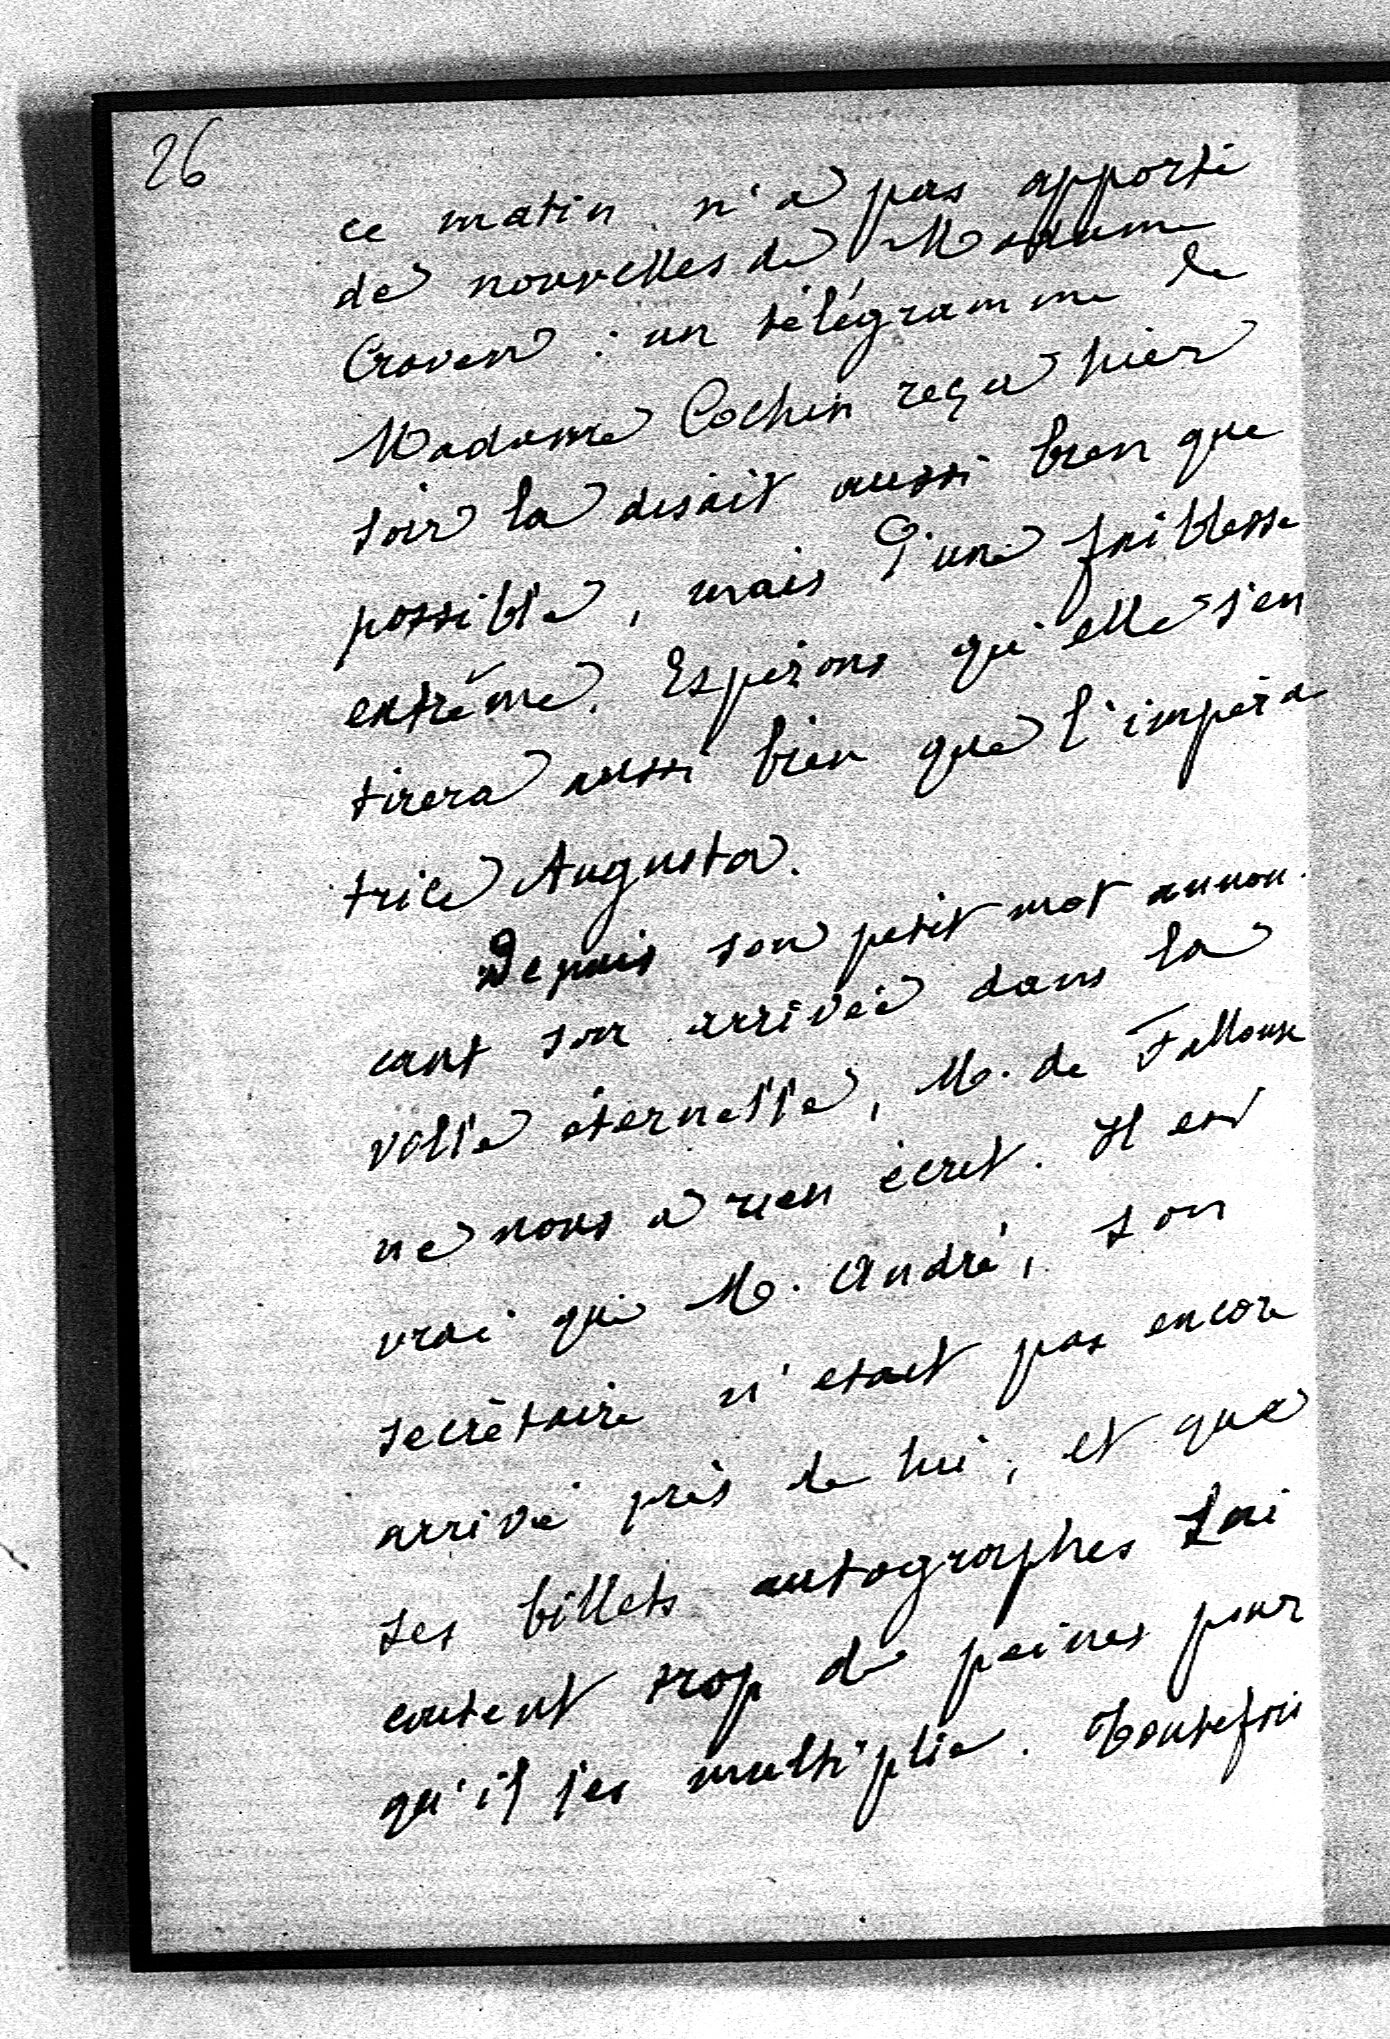 26
ce matin n'a pas apporté
de nouvelles de Madame
Craven : un télégramme de
Madame Cochin reçu hier
soir la disait aussi bien que
possible, mais d'une faiblesse
extrême. Espérons qu'elle s'en
tirera aussi bien que l'impéra
trice Augusta.
Depuis son petit mot annon-
cant son arrivée dans la
ville éternelle, M. de Falloux
ne nous a rien écrit. Il est
vrai que M. André, son
secrétaire n'était pas encore
arrivé près de lui, et que
ses billets autographes lui
coutent trop de peines pour
qu'il les multiplie. Toutefois